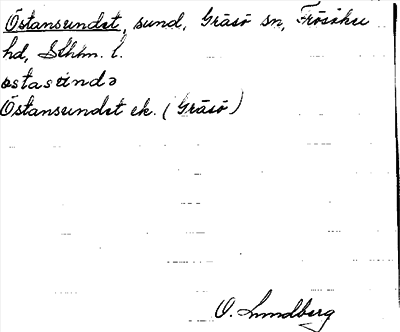 Östansundet, sund, Gräsö sn, Frösåker
hd, Sthlm. l.
östasúndə
Östansundet ek. (Gräsö)
O. Lundberg